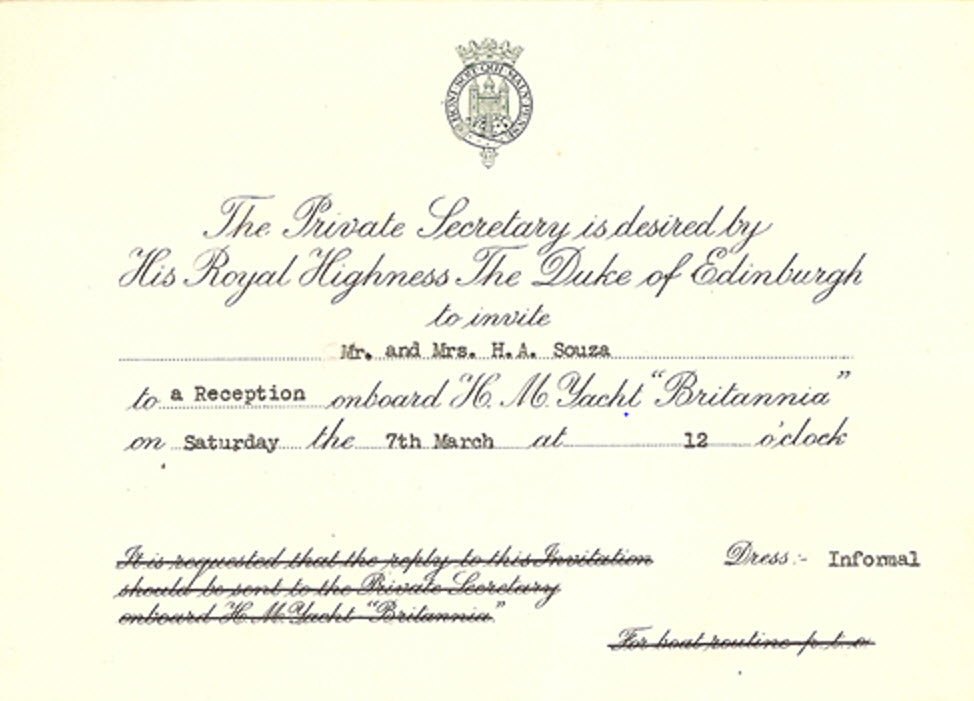 HONI SOIT QUI MAL Y PENSE
The Private Secretary is desired by
His Royal Highness The Duke of Edinburgh
to invite
Mr. and Mrs. H.A. Souza
to a Reception onboard H. M. Yacht "Britannia"
on Saturday the 7th March at 12 o'clock
It is requested that the reply to this Invitation
should be sent to the Private Secretary
onboard H. M. Yacht "Britannia"
Dress:- Informal
For boat routine p.t.o.